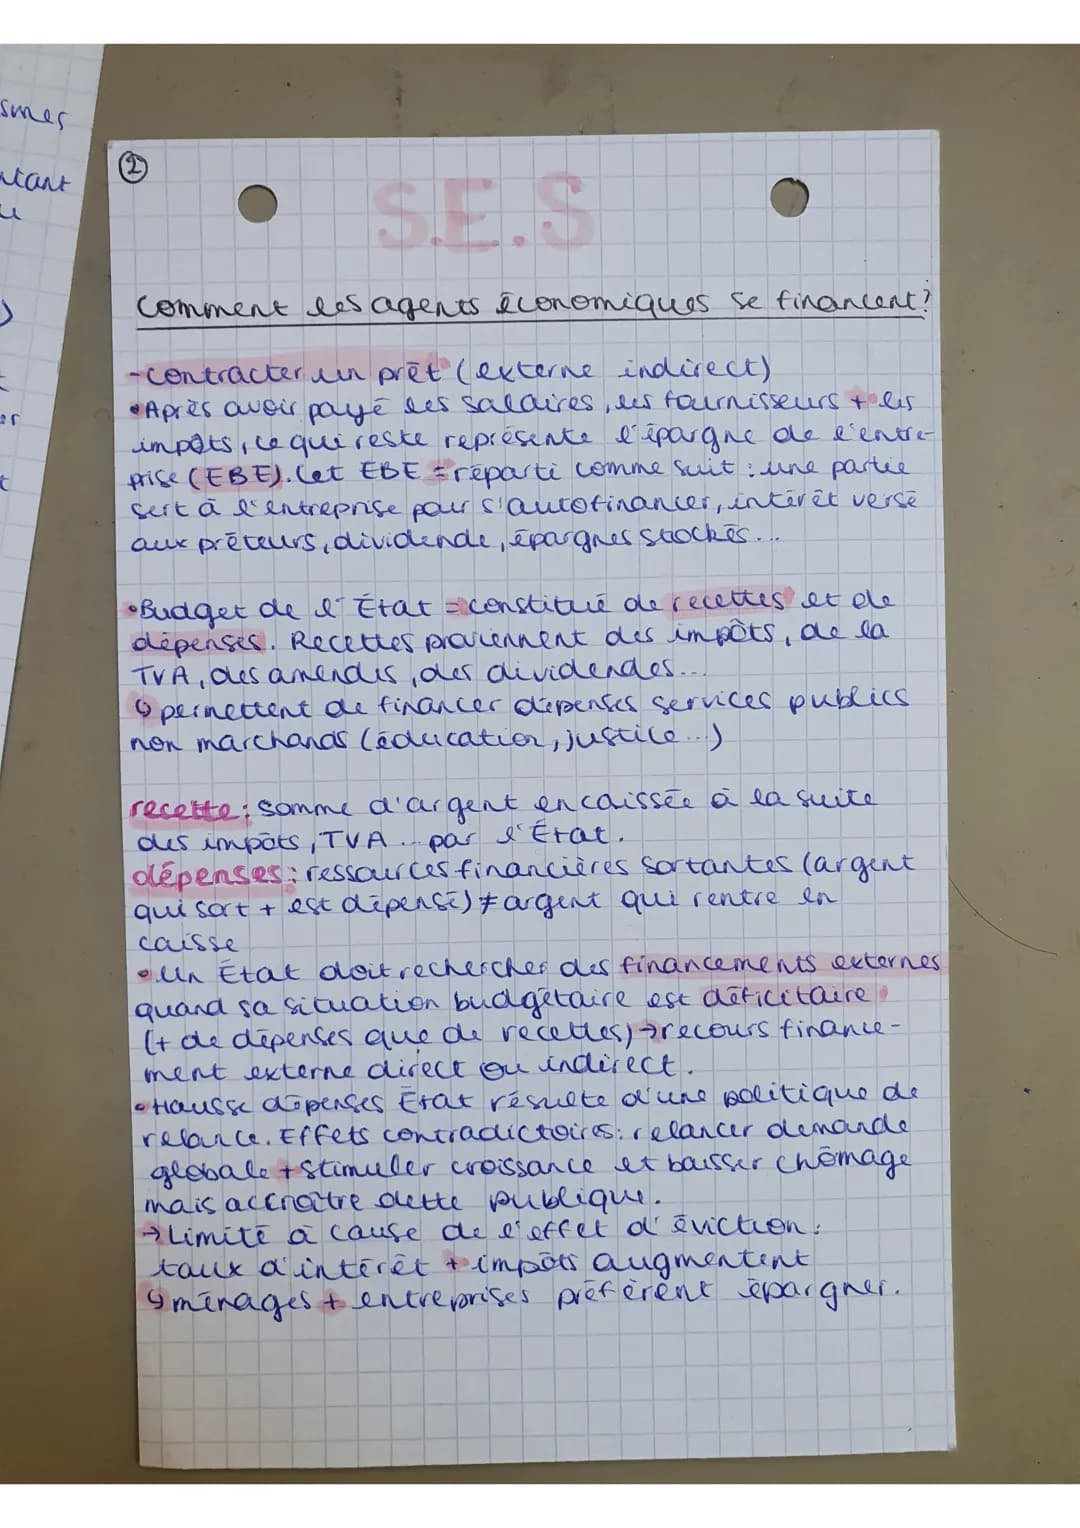 smes
②
S.E.S
Comment les agents économiques se financent?
-contracter un prêt (externe indirect)
•Après avoir payé les salaires, les fournisseurs + les
impôts, ce qui reste représente l'épargne de l'entre-
prise (EBE). Cet EBE = réparti comme suit : une partie
sert à l'entreprise pour s'autofinancer, intérêt versé
aux prêteurs, dividende, épargnes stockés...
•Budget de l'État = constitué de recettes et de
dépenses. Recettes proviennent des impôts, de la
TVA, des amendes, des dividendes...
↳ permettent de financer dépenses services publics
non marchands (éducation, justice...)
recette : somme d'argent encaissée à la suite
des impôts, TVA... par l'État.
dépenses : ressources financières sortantes (argent
qui sort + est dépensé) ≠ argent qui rentre en
caisse
•Un État doit rechercher des financements externes
quand sa situation budgétaire est déficitaire
(+ de dépenses que de recettes) → recours finance-
ment externe direct ou indirect.
•Hausse dépenses État résulte d'une politique de
relance. Effets contradictoires : relancer demande
globale + stimuler croissance et baisser chômage
mais accroître dette publique.
→ Limité à cause de l'effet d'éviction :
taux d'intérêt + impôts augmentent
↳ ménages + entreprises préfèrent épargner.